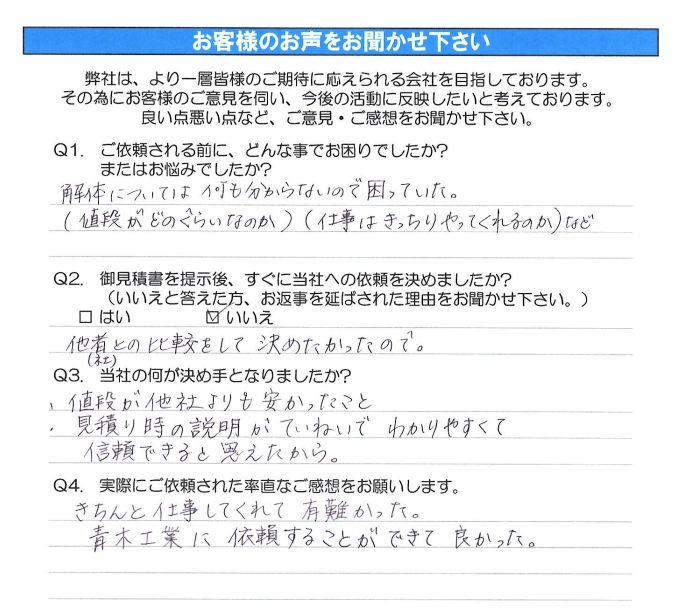 お客様のお声をお聞かせ下さい
弊社は、より一層皆様のご期待に応えられる会社を目指しております。
その為にお客様のご意見を伺い、今後の活動に反映したいと考えております。
良い点悪い点など、ご意見・ご感想をお聞かせ下さい。
Q1. ご依頼される前に、どんな事でお困りでしたか?
またはお悩みでしたか?
解体については何も分からないので困っていた。
(値段がどのぐらいなのか)(仕事はきっちりやってくれるのか)など
Q2. 御見積書を提示後、すぐに当社への依頼を決めましたか?
(いいえと答えた方、お返事を延ばされた理由をお聞かせ下さい。)
□ はい ☑ いいえ
他者との比較をして決めたかったので。
(社)
Q3. 当社の何が決め手となりましたか?
、値段が他社よりも安かったこと
・見積り時の説明がていねいでわかりやすくて
信頼できると思えたから。
Q4. 実際にご依頼された率直なご感想をお願いします。
きちんと仕事してくれて有難かった。
青木工業に依頼することができて良かった。